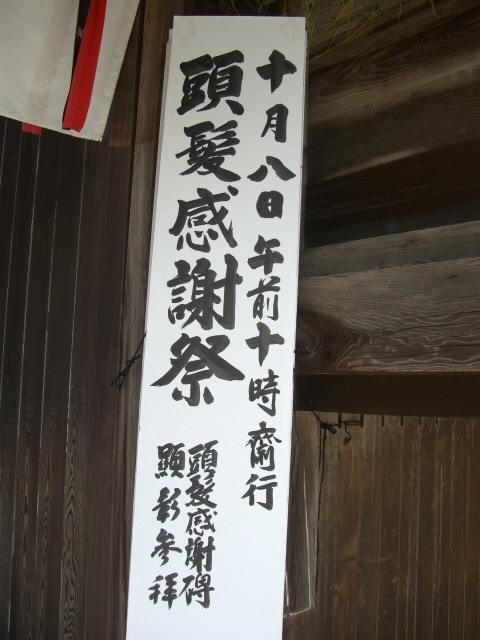 十月八日午前十時斎行
頭髪感謝祭
頭髪感謝碑
顕彰参拝